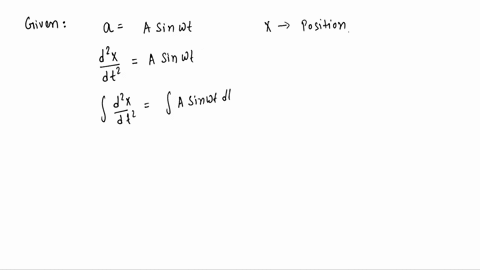 Given: a = A sin ωt x → Position.
d²x/dt² = A sin ωt
∫ d²x/dt² = ∫ A sin ωt dt